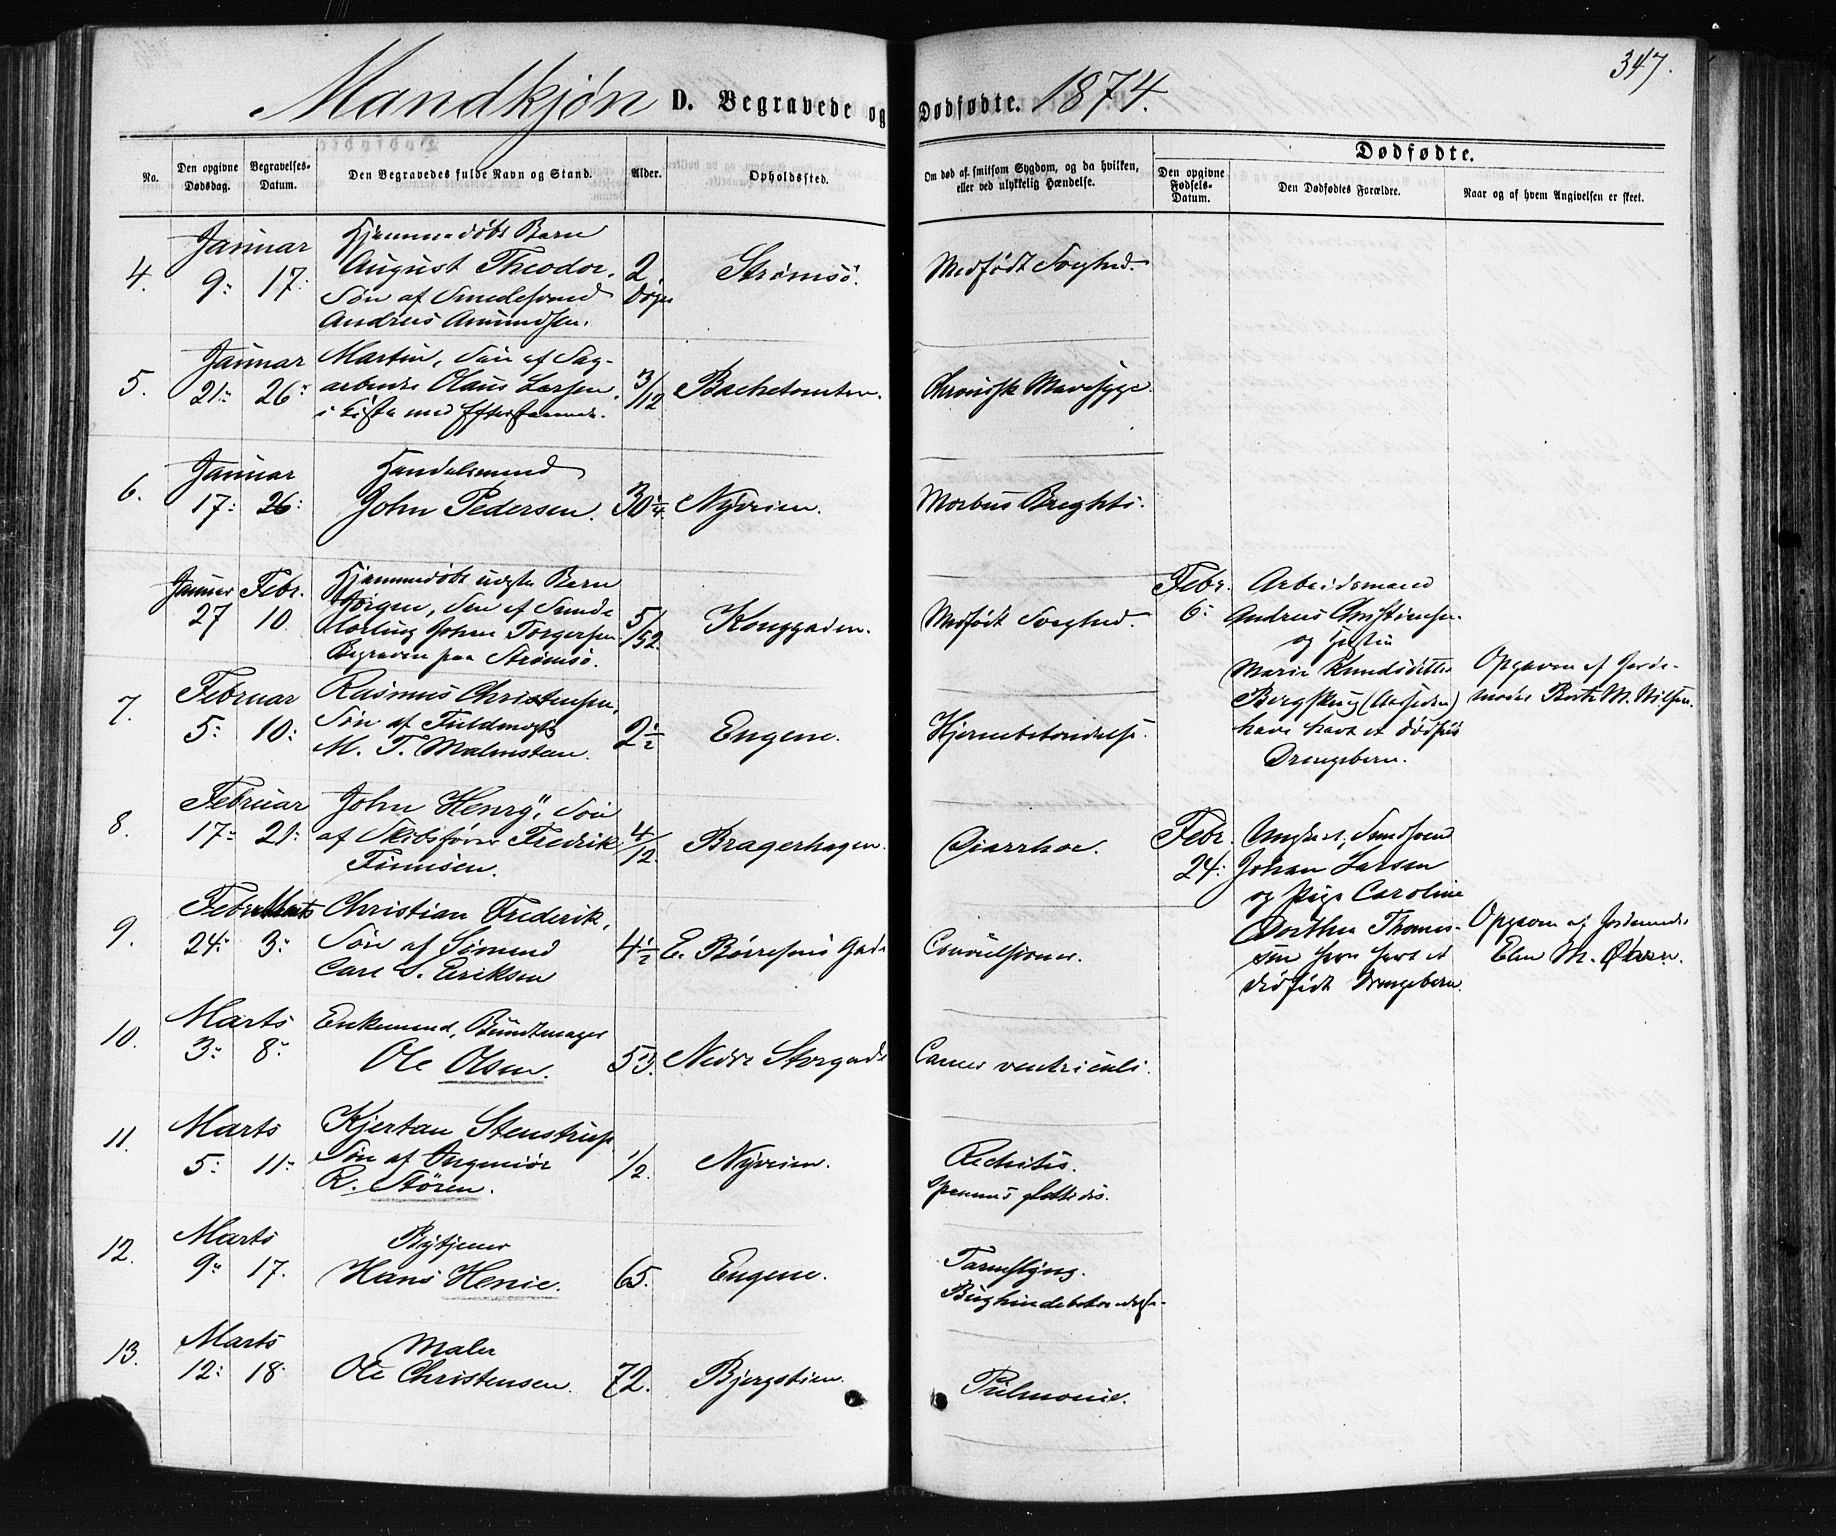 347.
Mandkjøn D. Begravede og Dødfødte. 1874.
No.
Den opgivne Dødsdag.
Begravelses-Datum.
Den Begravedes fulde Navn og Stand.
Alder.
Opholdssted.
Om død af smitsom Sygdom, og da hvilken, eller ved ulykkelig Hændelse.
Dødfødte.
Den opgivne Fødsels-Datum.
Den Dødfødtes Forældre.
Naar og af hvem Angivelsen er skeet.
Januar Hjemmedøbt Barn
4. 9: 17: August Theodor, 2 Døgn Strømsö. Medfødt Svaghed.
Søn af Smedesvend
Andreas Amundsen.
Januar Martin, Søn af Sag-
5. 21: 26: arbeider Olaus Larsen, 3/12 Bachetomten. Chronisk Mavesyge.
Januar Handelsmand
6. 17: 26: John Pedersen. 30 1/4 Nÿveien. Morbus Breghti.
Januar Febr. Hjemmedøbt uægte Barn
27 10 Jørgen, Søn af Smede 5/52 Konggaden. Medfødt Svaghed.
lærling Johan Torgersen
Begraven paa Strømsö.
Febr. 6: Arbeidsmand
Andreas Christensen
og Hustru
Marie Knudsdatter
Bergskaug (Aassiden)
have havt et dødfødt
Drengebarn.
Opgaven af Jorde-
moder Berth M. Nilsen.
Februar Rasmus Christensen,
7. 5: 10: Søn af Fuldmægt. 2 1/2 Engene. Hjernebetændelse.
M. T. Malmsteen.
Februar John Henrÿ, Søn
8. 17: 21: af Skibsfører Fredrik 4/12 Bragerhagen. Diarrhoe.
Tönnisen.
Febr. 24: Ungkarl, Smedsvend
Johan Larsen
og Pige Caroline
Dorthea Thomas-
sen have havt et
dødfødt Drengebarn.
Opgaven af Jordemoder
Elen M.
Febr. Marts Christian Frederik,
9. 24: 3: Søn af Sömand 4 1/2 E. Börresens Gade Convulsioner.
Carl S. Eriksen
Marts Enkemand, Buntmager
10. 3: 8: Ole Olsen. 53. Nedre Storgade Cancer ventriculi.
Marts Kjertan Stenstrup
11. 5: 11: Søn af Ingeniør 1/2. Nÿveien. Rachitis.
R. Støren. Spasmus glottidis.
Marts Bÿtjener
12. 9: 17. Hans Henie. 65. Engene. Tarmslÿng.
Bughindebetændelse.
Marts Maler
13. 12: 18: Ole Christensen. 72. Bjergstien. Pulmonie.